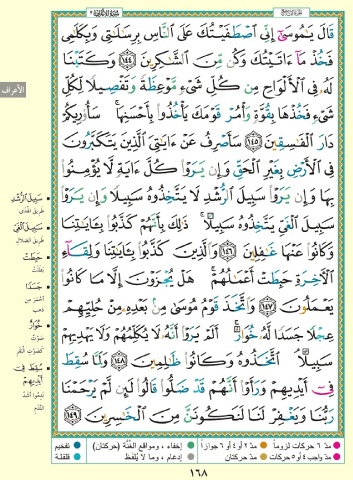 قَالَ يَـٰمُوسَىٰٓ إِنِّى ٱصْطَفَيْتُكَ عَلَى ٱلنَّاسِ بِرِسَـٰلَـٰتِى وَبِكَلَـٰمِى
فَخُذْ مَآ ءَاتَيْتُكَ وَكُن مِّنَ ٱلشَّـٰكِرِينَ ١٤٤ وَكَتَبْنَا
لَهُۥ فِى ٱلْأَلْوَاحِ مِن كُلِّ شَىْءٍ مَّوْعِظَةً وَتَفْصِيلًا لِّكُلِّ
شَىْءٍ فَخُذْهَا بِقُوَّةٍ وَأْمُرْ قَوْمَكَ يَأْخُذُوا۟ بِأَحْسَنِهَا ۚ سَأُو۟رِيكُمْ
دَارَ ٱلْفَـٰسِقِينَ ١٤٥ سَأَصْرِفُ عَنْ ءَايَـٰتِىَ ٱلَّذِينَ يَتَكَبَّرُونَ
فِى ٱلْأَرْضِ بِغَيْرِ ٱلْحَقِّ وَإِن يَرَوْا۟ كُلَّ ءَايَةٍ لَّا يُؤْمِنُوا۟
بِهَا وَإِن يَرَوْا۟ سَبِيلَ ٱلرُّشْدِ لَا يَتَّخِذُوهُ سَبِيلًا وَإِن يَرَوْا۟
سَبِيلَ ٱلْغَىِّ يَتَّخِذُوهُ سَبِيلًا ۚ ذَٰلِكَ بِأَنَّهُمْ كَذَّبُوا۟ بِـَٔايَـٰتِنَا
وَكَانُوا۟ عَنْهَا غَـٰفِلِينَ ١٤٦ وَٱلَّذِينَ كَذَّبُوا۟ بِـَٔايَـٰتِنَا وَلِقَآءِ
ٱلْـَٔاخِرَةِ حَبِطَتْ أَعْمَـٰلُهُمْ ۚ هَلْ يُجْزَوْنَ إِلَّا مَا كَانُوا۟
يَعْمَلُونَ ١٤٧ وَٱتَّخَذَ قَوْمُ مُوسَىٰ مِنۢ بَعْدِهِۦ مِنْ حُلِيِّهِمْ
عِجْلًا جَسَدًا لَّهُۥ خُوَارٌ ۚ أَلَمْ يَرَوْا۟ أَنَّهُۥ لَا يُكَلِّمُهُمْ وَلَا يَهْدِيهِمْ
سَبِيلًا ۘ ٱتَّخَذُوهُ وَكَانُوا۟ ظَـٰلِمِينَ ١٤٨ وَلَمَّا سُقِطَ
فِىٓ أَيْدِيهِمْ وَرَأَوْا۟ أَنَّهُمْ قَدْ ضَلُّوا۟ قَالُوا۟ لَئِن لَّمْ يَرْحَمْنَا
رَبُّنَا وَيَغْفِرْ لَنَا لَنَكُونَنَّ مِنَ ٱلْخَـٰسِرِينَ ١٤٩
الأعراف
سَبِيلَ الرُّشْدِ
طريق الهُدَى
سَبِيلَ الغَيِّ
طريق الضلال
حَبِطَتْ
بَطَلَتْ
جَسَدًا
أحمر من
ذهب
خُوَارٌ
صَوْتٌ
كصَوْتِ البقر
سُقِطَ فِي
أَيْدِيهِمْ
نَدِمُوا أشدّ
النَّدَم
مدّ ٦ حركات لزوماً
مدّ ٢ أو ٤ أو ٦ جوازاً
إخفاء، ومواقع الغُنَّة (حركتان)
تفخيم
مدّ واجب ٤ أو ٥ حركات
مدّ حركتان
إدغام، وما لا يُلفَظ
قلقلة
١٦٨